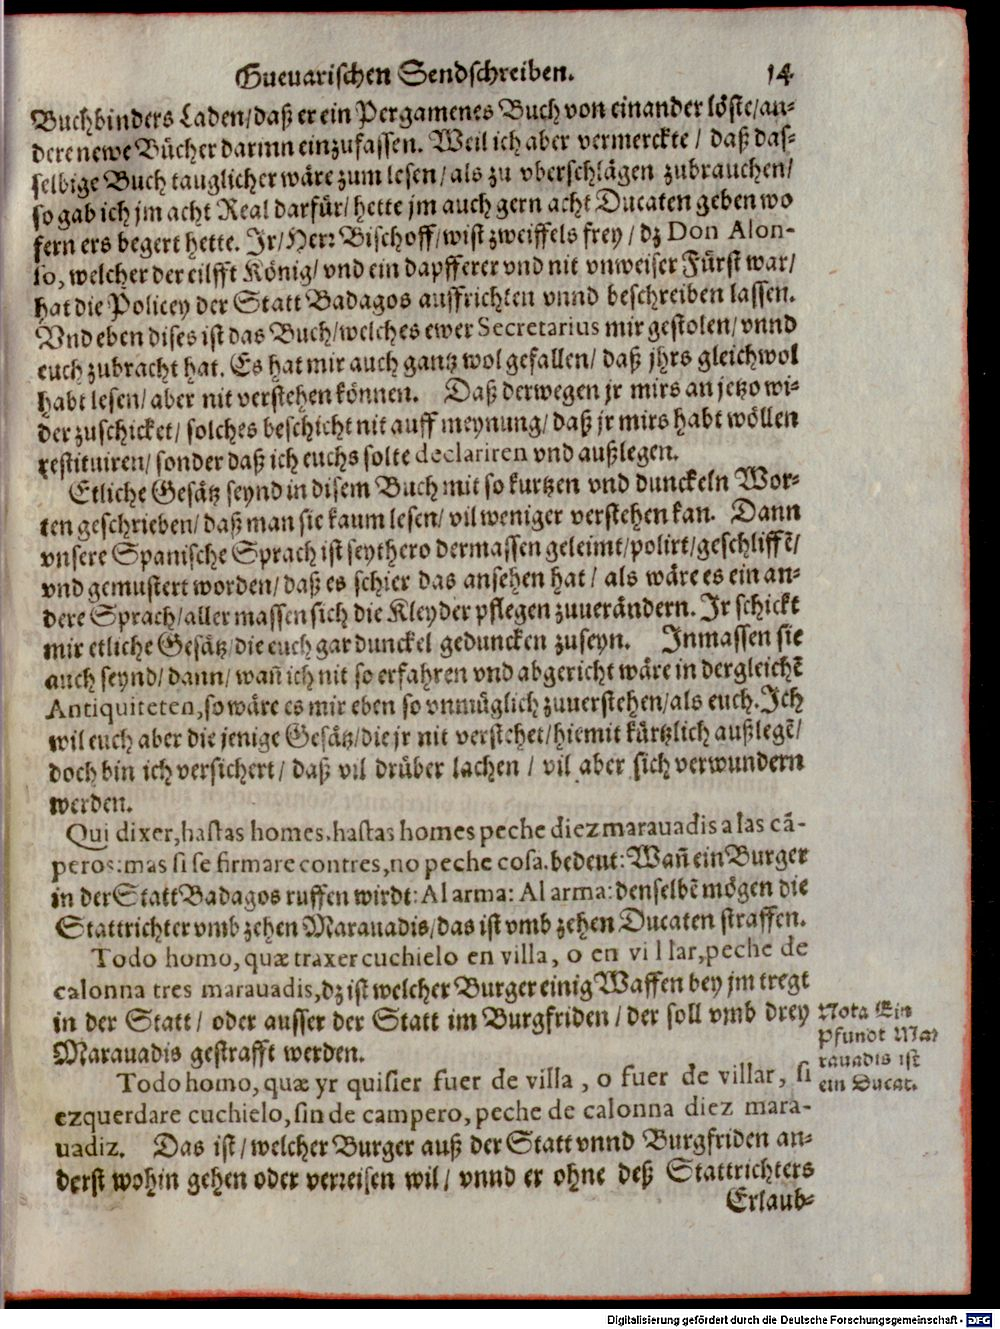 Guevarischen Sendschreiben. 14
Buchbinders Laden/daß er ein Pergamenes Buch von einander löste/an-
dere newe Bücher darinn einzufassen. Weil ich aber vermerckte / daß das-
selbige Buch tauglicher wäre zum lesen/als zu vberschlägen zubrauchen/
so gab ich jm acht Real darfür/hette jm auch gern acht Ducaten geben wo
fern ers begert hette. Jr/Herr Bischoff/wist zweiffels frey / dz Don Alon-
so, welcher der eilfft König/vnd ein dapfferer vnd nit vnweiser Fürst war/
hat die Policey der Statt Badagos auffrichten vnnd beschreiben lassen.
Vnd eben dises ist das Buch/welches ewer Secretarius mir gestolen/vnnd
euch zubracht hat. Es hat mir auch gantz wol gefallen/ daß jhrs gleichwol
habt lesen/aber nit verstehen können. Daß derwegen jr mirs an jetzo wi-
der zuschicket/ solches beschicht nit auff meynung/daß jr mirs habt wöllen
restituiren/sonder daß ich euchs solte declariren vnd außlegen.
Etliche Gesätz seynd in disem Buch mit so kurtzen vnd dunckeln Wor-
ten geschrieben/daß man sie kaum lesen/vil weniger verstehen kan. Dann
vnsere Spanische Sprach ist seythero dermassen geleimt/polirt/geschliffẽ/
vnd gemustert worden/daß es schier das ansehen hat / als wäre es ein an-
dere Sprach/aller massen sich die Kleyder pflegen zuuerändern. Jr schickt
mir etliche Gesätz/die euch gar dunckel geduncken zuseyn. Jnmassen sie
auch seynd/dann/wañ ich nit so erfahren vnd abgericht wäre in dergleichẽ
Antiquiteten, so wäre es mir eben so vnmüglich zuuerstehen/als euch. Jch
wil euch aber die jenige Gesätz/die jr nit verstehet/hiemit kürtzlich außlegẽ/
doch bin ich versichert/ daß vil drüber lachen / vil aber sich verwundern
werden.
Qui dixer, hastas homes. hastas homes peche diez marauadis a las cã-
peros: mas si se firmare contres, no peche cosa. bedeut: Wañ ein Burger
in der Statt Badagos ruffen wirdt: Al arma: Al arma: denselbẽ mögen die
Stattrichter vmb zehen Marauadis/das ist vmb zehen Ducaten straffen.
Todo homo, quæ traxer cuchielo en villa, o en villar, peche de
calonna tres marauadis, dz ist welcher Burger einig Waffen bey jm tregt
in der Statt/ oder ausser der Statt im Burgfriden / der soll vmb drey
Marauadis gestrafft werden.
Nota Ein
Pfundt Ma-
rauadis ist
ein Ducat.
Todo homo, quæ yr quisier fuer de villa, o fuer de villar, si
ezquerdare cuchielo, sin de campero, peche de calonna diez mara-
uadiz. Das ist / welcher Burger auß der Statt vnnd Burgfriden an-
derst wohin gehen oder verreisen wil / vnnd er ohne deß Stattrichters
Erlaub-
Digitalisierung gefördert durch die Deutsche Forschungsgemeinschaft - DFG